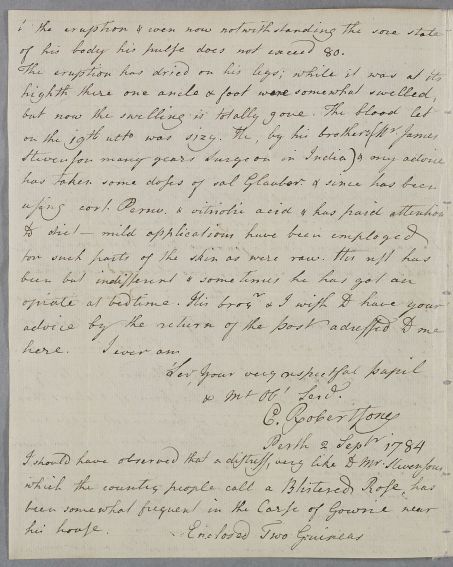 the eruption & even now notwithstanding the sore state
of his body his pulse does not exceed 80.
The eruption has dried on his legs; while it was at its
highth there one ancle & foot were somewhat swelled,
but now the swelling is totally gone. The blood let
on the 19th ulto was sizy. He, by his brothers (Mr James
Stevenson many years Surgeon in India) & my advice
has taken some doses of sal Glauber. & since has been
using cort. Peruv. & vitriolic acid & has paid attention
to diet — mild applications have been employed
for such parts of the skin as were raw. His rest has
been but indifferent & sometimes he has got an
opiate at bedtime. His bror & I wish to have your
advice by the return of the post adressed to me
here. I ever am
Sir, Your very respectful pupil
& Mt Obt Servt.
C. Robertson
Perth 2 Septr 1784
I should have observed that a distress, very like to Mr. Stevensons,
which the country people call a Blistered Rose, has
been somewhat frequent in the Carse of Gowrie near
his house. Enclosed Two Guineas